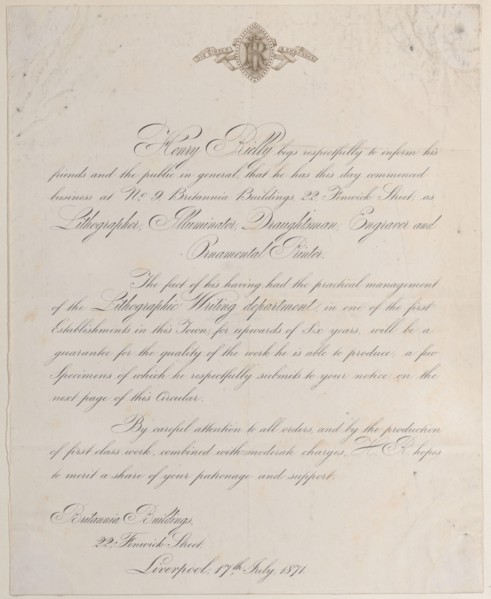 HR
Henry Rielly begs respectfully to inform his
friends and the public in general, that he has this day commenced
business at No. 9, Britannia Buildings, 22, Fenwick Street, as
Lithographer, Illuminator, Draughtsman, Engraver and
Ornamental Printer.
The fact of his having had the practical management
of the Lithographic Writing department, in one of the first
Establishments in this Town, for upwards of Six years, will be a
guarantee for the quality of the work he is able to produce, a few
Specimens of which he respectfully submits to your notice, on the
next page of this Circular.
By careful attention to all orders, and by the production
of first class work, combined with moderate charges, H. R. hopes
to merit a share of your patronage and support.
Britannia Buildings,
22, Fenwick Street,
Liverpool, 17th July, 1871.